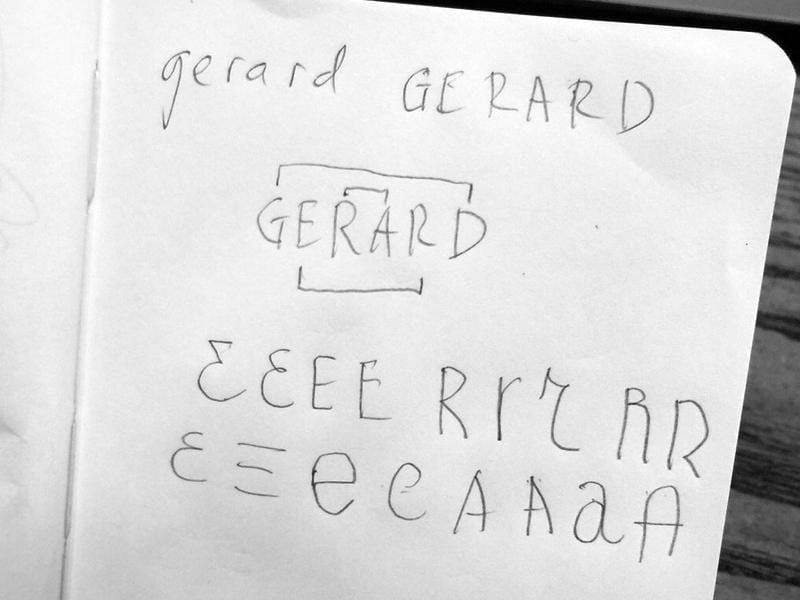 gerard GERARD
GERARD
ƐƐEE Rrɽ RR
ƐΞee AAaA